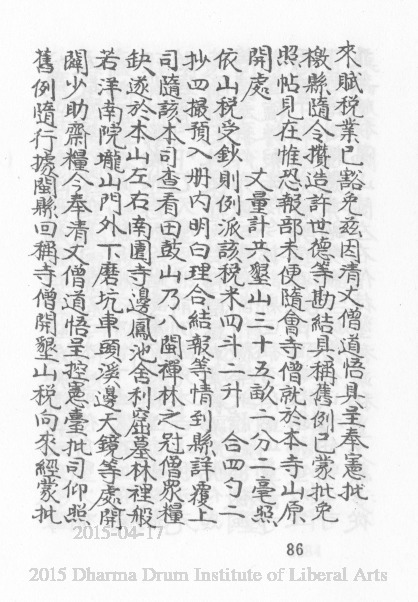 來賦稅業已豁免茲因清丈僧道悟具呈奉憲批
檄縣隨令攢造許世德等勘結具稱舊例已蒙批免
照帖見在惟恐報部未便隨會寺僧就於本寺山原
開處　丈量計共墾山三十五畝二分二毫照
依山稅受鈔則例派該稅米四斗二升　合四勺二
抄四撮預入册內明白理合結報等情到縣詳覆上
司隨該本司查看田鼓山乃八閩禪林之冠僧眾糧
缺遂於本山左右南園寺邊鳳池舍利窟墓林裡般
若洋南院壠山門外下磨坑車頭溪邊大鏡等處開
闢少助齋糧今奉清丈僧道悟呈控憲臺批司仰照
舊例隨行據閩縣回稱寺僧開墾山稅向來經蒙批
2015-04-17
86
2015 Dharma Drum Institute of Liberal Arts